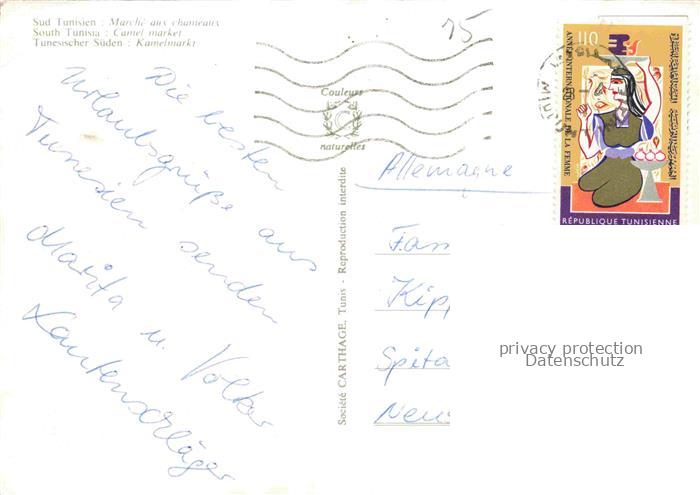 Sud Tunisien : Marché aux chameaux
South Tunisia : Camel market
Tunesischer Süden : Kamelmarkt
15
Die besten
Urlaubsgrüße aus
Tunesien senden
Marita u. Volker
Lautenschläger
Couleurs
naturelles
Société CARTHAGE, Tunis - Reproduction interdite
Allemagne
Fam
Kipp
Spita
Neu
110
ANNÉE INTERNATIONALE DE LA FEMME
RÉPUBLIQUE TUNISIENNE
privacy protection
Datenschutz